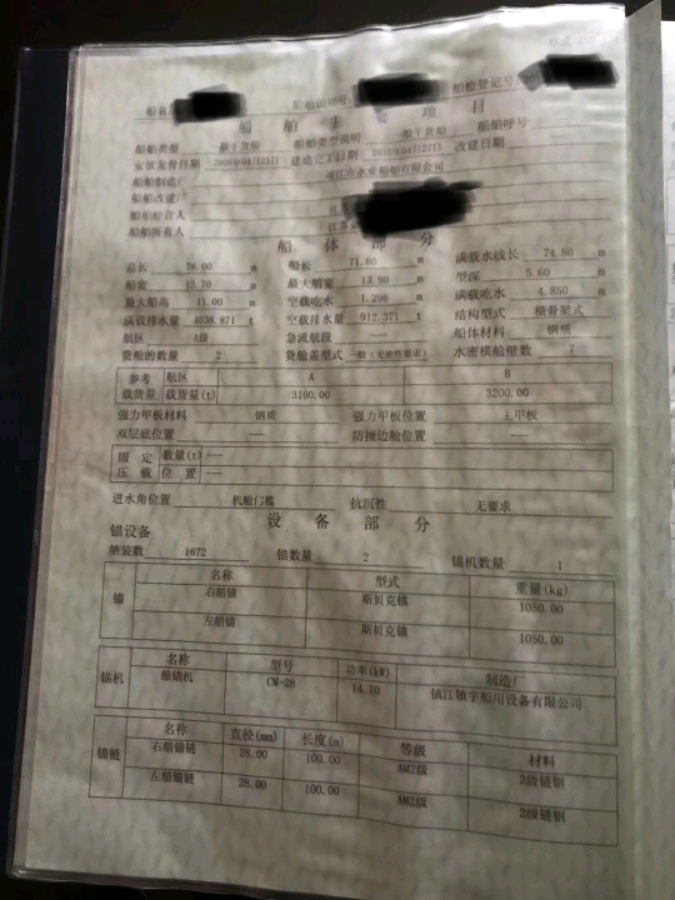 船名 船舶识别号 船检登记号
船 舶 主 要 项 目
船舶类型 一般干货船 船舶类型说明 一般干货船 船舶呼号 ---
安放龙骨日期 建造完工日期 改建日期
船舶制造厂
船舶改建厂
船舶经营人
船舶所有人
船 体 部 分
总长 76.00 m 船长 71.80 m 满载水线长 74.80 m
船宽 13.70 m 最大船宽 13.90 m 型深 5.60 m
最大船高 11.00 m 空载吃水 1.296 m 满载吃水 4.850 m
满载排水量 4038.871 t 空载排水量 912.371 t 结构型式 横骨架式
航区 A级 急流航段 --- 船体材料 钢质
货舱的数量 2 货舱盖型式 一般(无密性要求) 水密横舱壁数 7
参考 航区 A B
载货量 载货量(t) 3100.00 3200.00
强力甲板材料 钢质 强力甲板位置 主甲板
双层底位置 --- 防撞边舱位置 ---
固定 数量(t) ---
压载 位置 ---
进水角位置 机舱门槛 抗沉性 无要求
设 备 部 分
锚设备
舾装数 1672 锚数量 2 锚机数量 1
名称 型式 重量(kg)
锚 右艏锚 斯贝克锚 1050.00
左艏锚 斯贝克锚 1050.00
名称 型号 功率(kW) 制造厂
锚机 艏锚机 CM-28 14.70 镇江镇宇船用设备有限公司
名称 直径(mm) 长度(m) 等级 材料
锚链 右艏锚链 28.00 100.00 AM2级 2级链钢
左艏锚链 28.00 100.00 AM2级 2级链钢